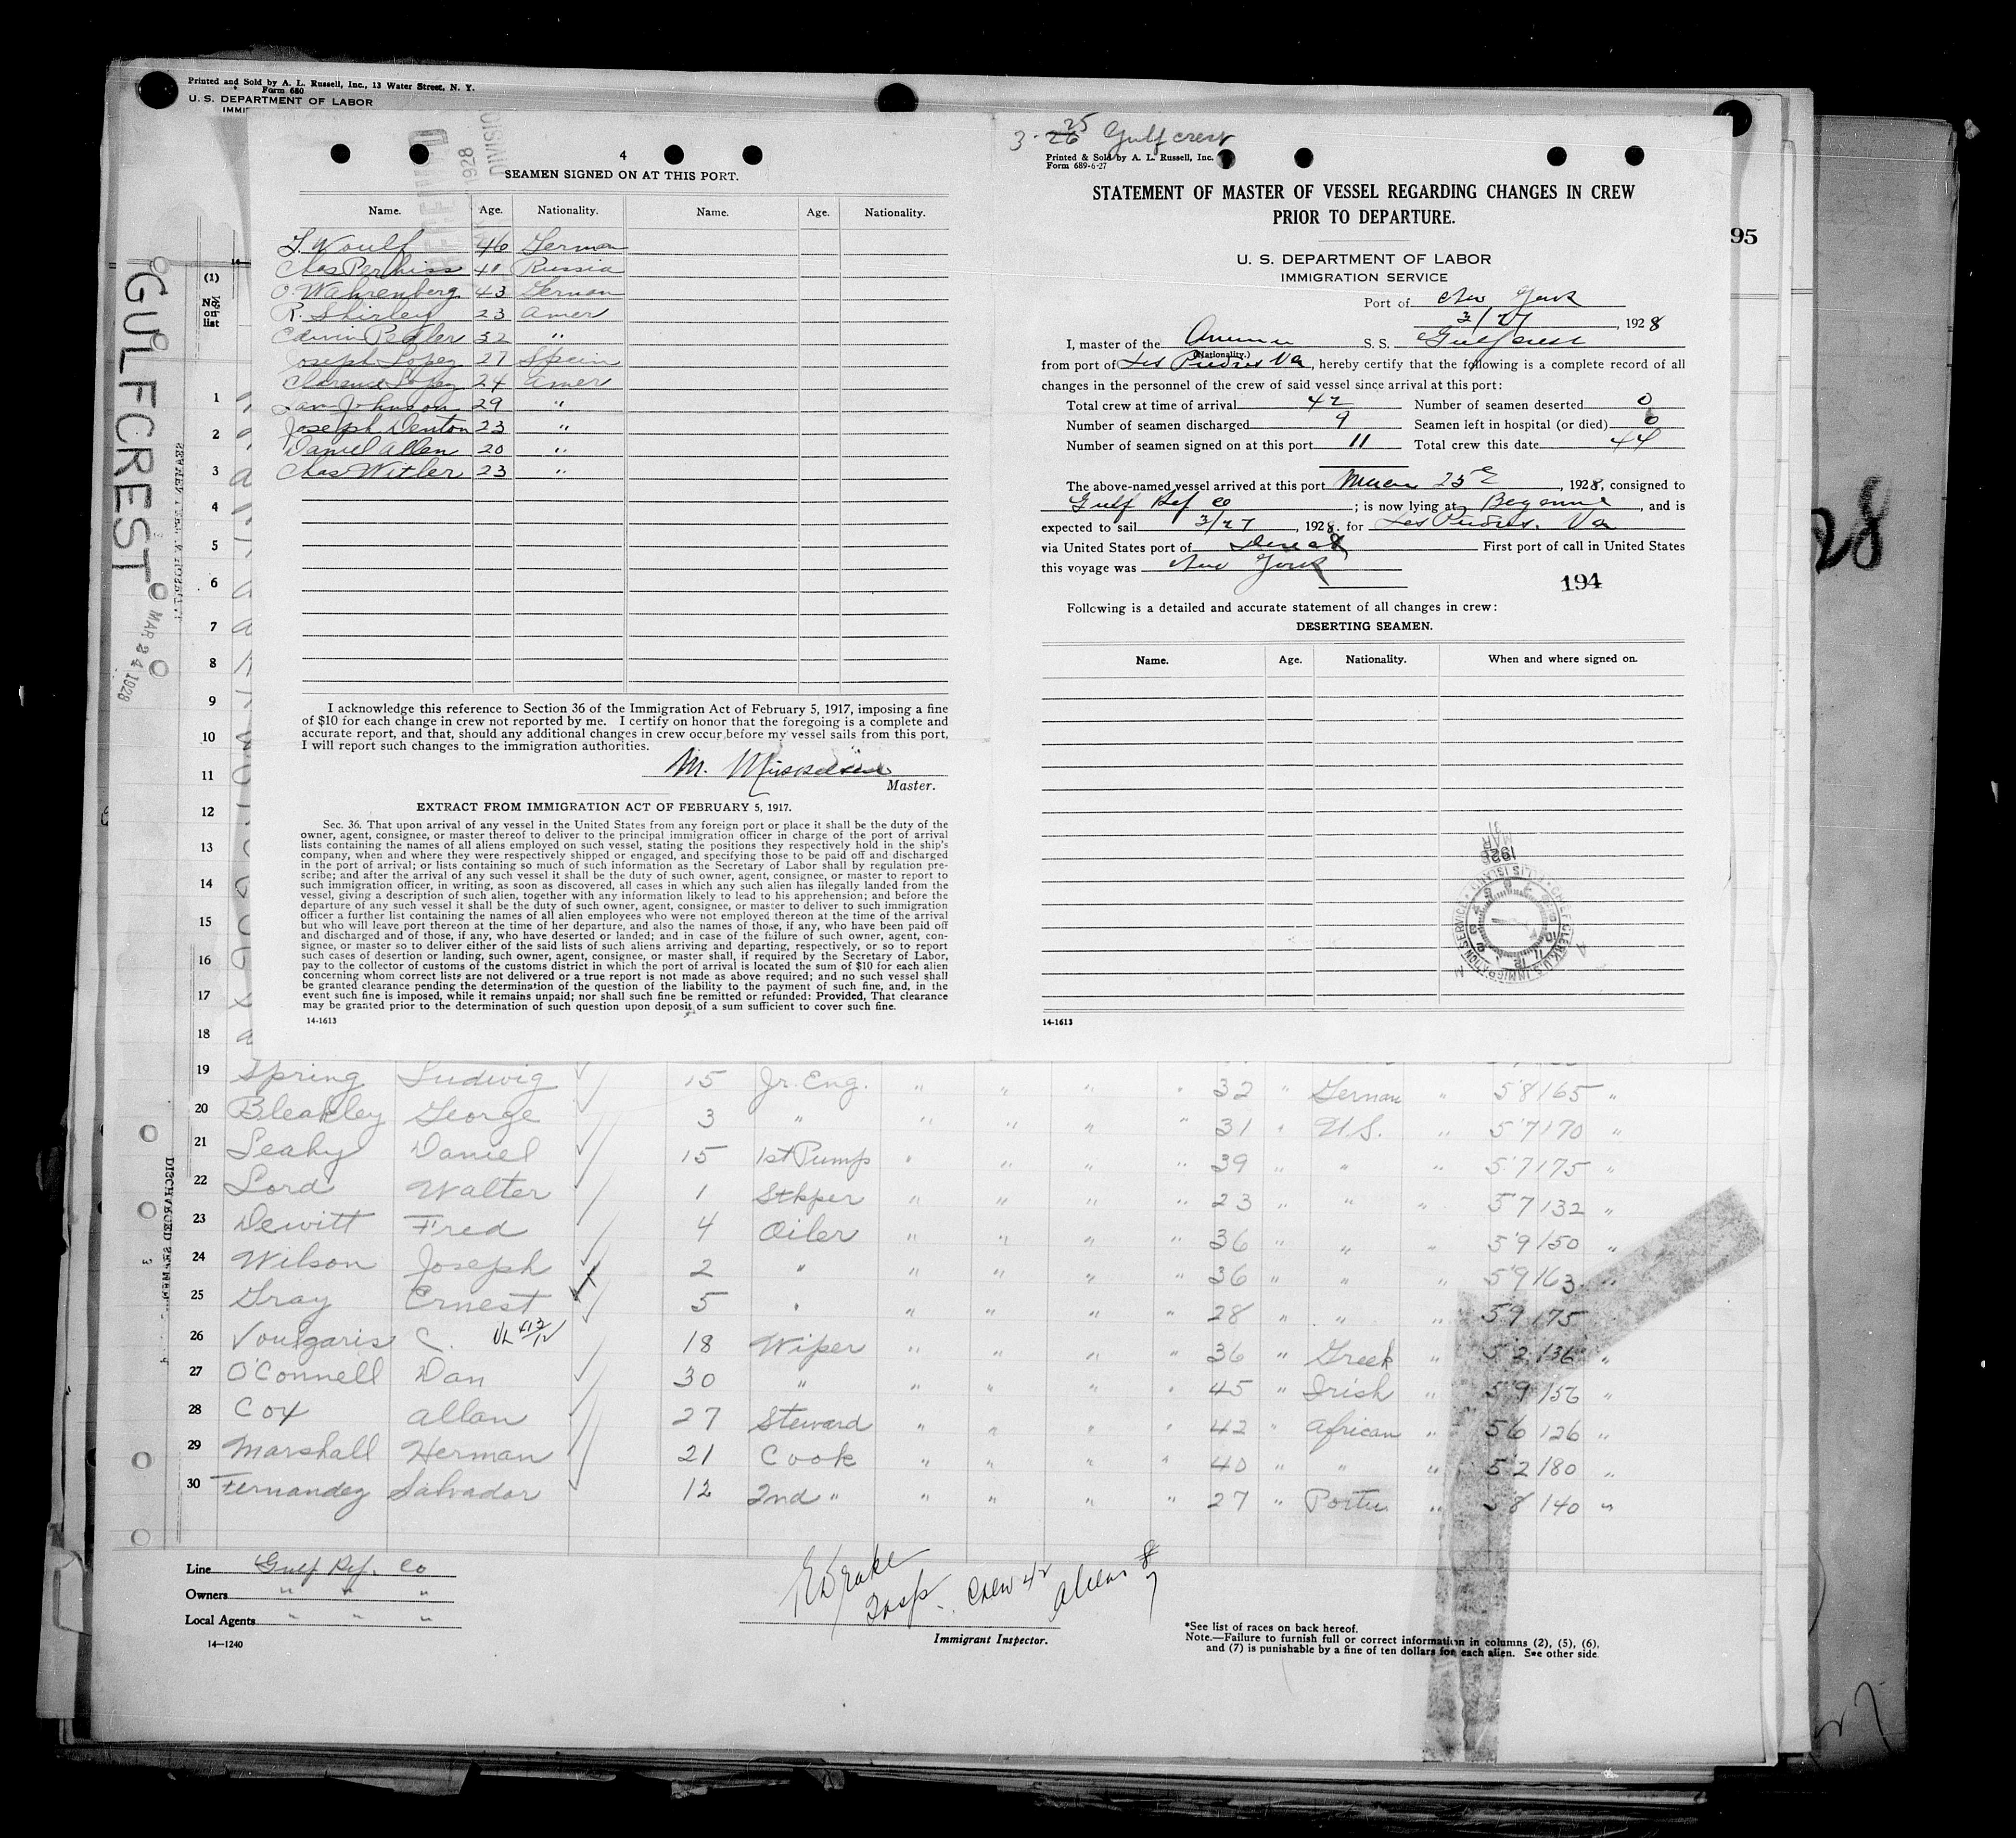 Printed and Sold by A. L. Russell, Inc., 13 Water Street, N. Y.
Form 680
U. S. DEPARTMENT OF LABOR
IMMI
GULFCREST
MAR 24 1928
(1)
No. on list
95
28
4
SEAMEN SIGNED ON AT THIS PORT.
Name. Age. Nationality. Name. Age. Nationality.
J. Woulf 46 German
Chas Perkiss 41 Russia
O. Wahrenberg 43 German
R. Shirley 23 Amer
Edwin Pedler 32 "
Joseph Lopez 27 Spain
Clarence Lopez 24 Amer
Johnson 29 "
Joseph Denton 23 "
Daniel Allen 20 "
Chas Witler 23 "
I acknowledge this reference to Section 36 of the Immigration Act of February 5, 1917, imposing a fine
of $10 for each change in crew not reported by me. I certify on honor that the foregoing is a complete and
accurate report, and that, should any additional changes in crew occur before my vessel sails from this port,
I will report such changes to the immigration authorities.
M.
Master.
EXTRACT FROM IMMIGRATION ACT OF FEBRUARY 5, 1917.
Sec. 36. That upon arrival of any vessel in the United States from any foreign port or place it shall be the duty of the
owner, agent, consignee, or master thereof to deliver to the principal immigration officer in charge of the port of arrival
lists containing the names of all aliens employed on such vessel, stating the positions they respectively hold in the ship's
company, when and where they were respectively shipped or engaged, and specifying those to be paid off and discharged
in the port of arrival; or lists containing so much of such information as the Secretary of Labor shall by regulation pre-
scribe; and after the arrival of any such vessel it shall be the duty of such owner, agent, consignee, or master to report to
such immigration officer, in writing, as soon as discovered, all cases in which any such alien has illegally landed from the
vessel, giving a description of such alien, together with any information likely to lead to his apprehension; and before the
departure of any such vessel it shall be the duty of such owner, agent, consignee, or master to deliver to such immigration
officer a further list containing the names of all alien employees who were not employed thereon at the time of the arrival
but who will leave port thereon at the time of her departure, and also the names of those, if any, who have been paid off
and discharged and of those, if any, who have deserted or landed; and in case of the failure of such owner, agent, con-
signee, or master so to deliver either of the said lists of such aliens arriving and departing, respectively, or so to report
such cases of desertion or landing, such owner, agent, consignee, or master shall, if required by the Secretary of Labor,
pay to the collector of customs of the customs district in which the port of arrival is located the sum of $10 for each alien
concerning whom correct lists are not delivered or a true report is not made as above required; and no such vessel shall
be granted clearance pending the determination of the question of the liability to the payment of such fine, and, in the
event such fine is imposed, while it remains unpaid; nor shall such fine be remitted or refunded: Provided, That clearance
may be granted prior to the determination of such question upon deposit of a sum sufficient to cover such fine.
14-1613
3-26 25 Gulfcrest
Printed & Sold by A. L. Russell, Inc.
Form 689-6-27
STATEMENT OF MASTER OF VESSEL REGARDING CHANGES IN CREW
PRIOR TO DEPARTURE.
U. S. DEPARTMENT OF LABOR
IMMIGRATION SERVICE
Port of New York
3/27, 1928
I, master of the S. S. Gulfcrest
(Nationality.)
from port of Las Piedras Va, hereby certify that the following is a complete record of all
changes in the personnel of the crew of said vessel since arrival at this port:
Total crew at time of arrival 42 Number of seamen deserted 0
Number of seamen discharged 9 Seamen left in hospital (or died) 0
Number of seamen signed on at this port 11 Total crew this date 44
The above-named vessel arrived at this port 25, 1928, consigned to
Gulf Ref Co; is now lying at Bayonne, and is
expected to sail 3/27, 1928 for Las Piedras, Va
via United States port of Direct First port of call in United States
this voyage was New York
194
Following is a detailed and accurate statement of all changes in crew:
DESERTING SEAMEN.
Name. Age. Nationality. When and where signed on.
MAR 1928
CHIEF CLERK, U. S. IMMIGRATION SERVICE ELLIS ISLAND
14-1613
1
2
3
4
5
6
7
8
9
10
11
12
13
14
15
16
17
18
19 Spring Ludwig 15 Jr. Eng. " " " " 32 " German " 5'8 165 "
20 Bleakley George 3 " " " " " 31 " U.S. " 5'7 170 "
21 Leahy Daniel 15 1st Pump " " " " 39 " " " 5'7 175 "
22 Lord Walter 1 Stkper " " " " 23 " " " 5'7 132 "
23 Dewitt Fred 4 Oiler " " " " 36 " " " 5'9 150 "
24 Wilson Joseph 2 " " " " " 36 " " " 5'9 163 "
25 Gray Ernest 5 " " " " " 28 " " " 5'9 175
26 Vougaris C. 18 Wiper " " " " 36 " Greek " 5'2 136 "
27 O'Connell Dan 30 " " " " " 45 " Irish " 5'9 156 "
28 Cox Allan 27 Steward " " " " 42 " African " 5'6 126 "
29 Marshall Herman 21 Cook " " " " 40 " " " 5'2 180 "
30 Fernandez Salvador 12 2nd " " " " " 27 " Portu " 5'8 140 "
Line Gulf Ref. Co
Owners " " "
Local Agents " " "
14-1240
Insp. Crew 42 Aliens 8
Immigrant Inspector.
*See list of races on back hereof.
Note.—Failure to furnish full or correct information in columns (2), (5), (6),
and (7) is punishable by a fine of ten dollars for each alien. See other side.